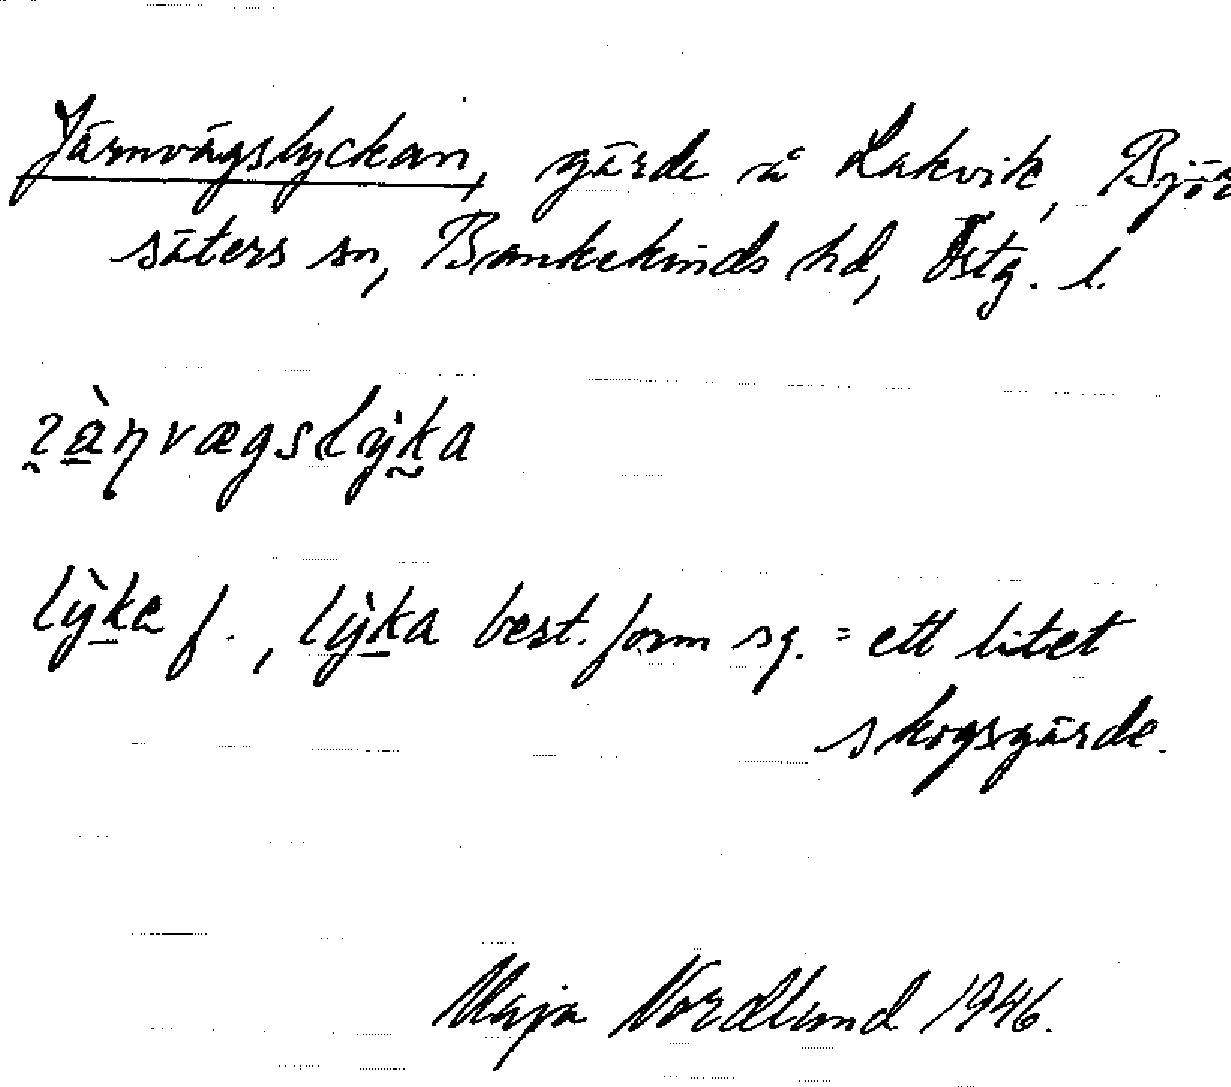 Järnvägslyckan, gärde å Lakvik, Björ
säters sn, Bankekinds hd, Östg. l.
lỳka best. form sg. = ett litet
skogsgärde.
Maja Nordlund 1946.